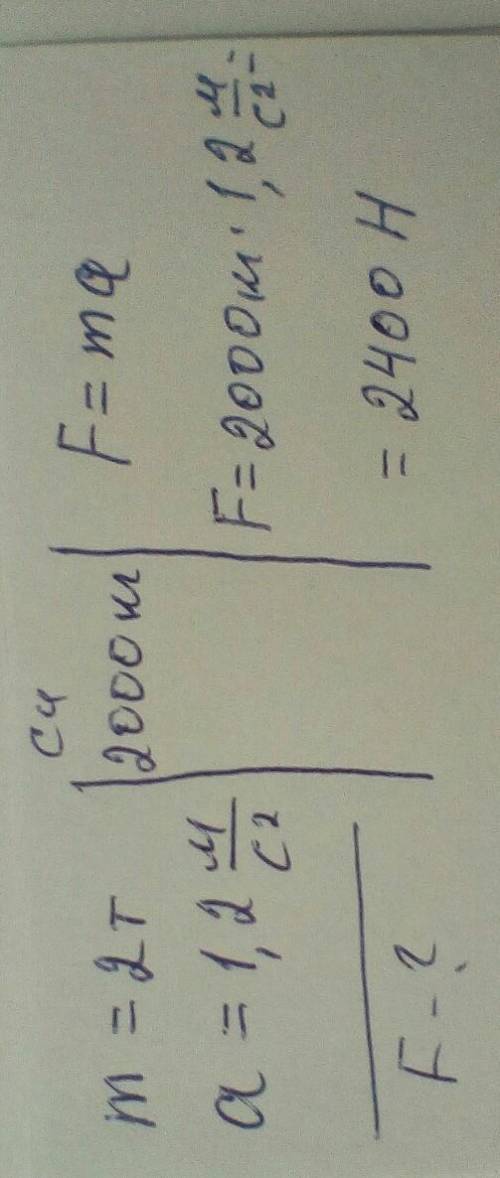 m = 2т
a = 1,2 м/с²
F - ?
СИ
2000 кг
F = ma
F = 2000 кг · 1,2 м/с² =
= 2400 Н